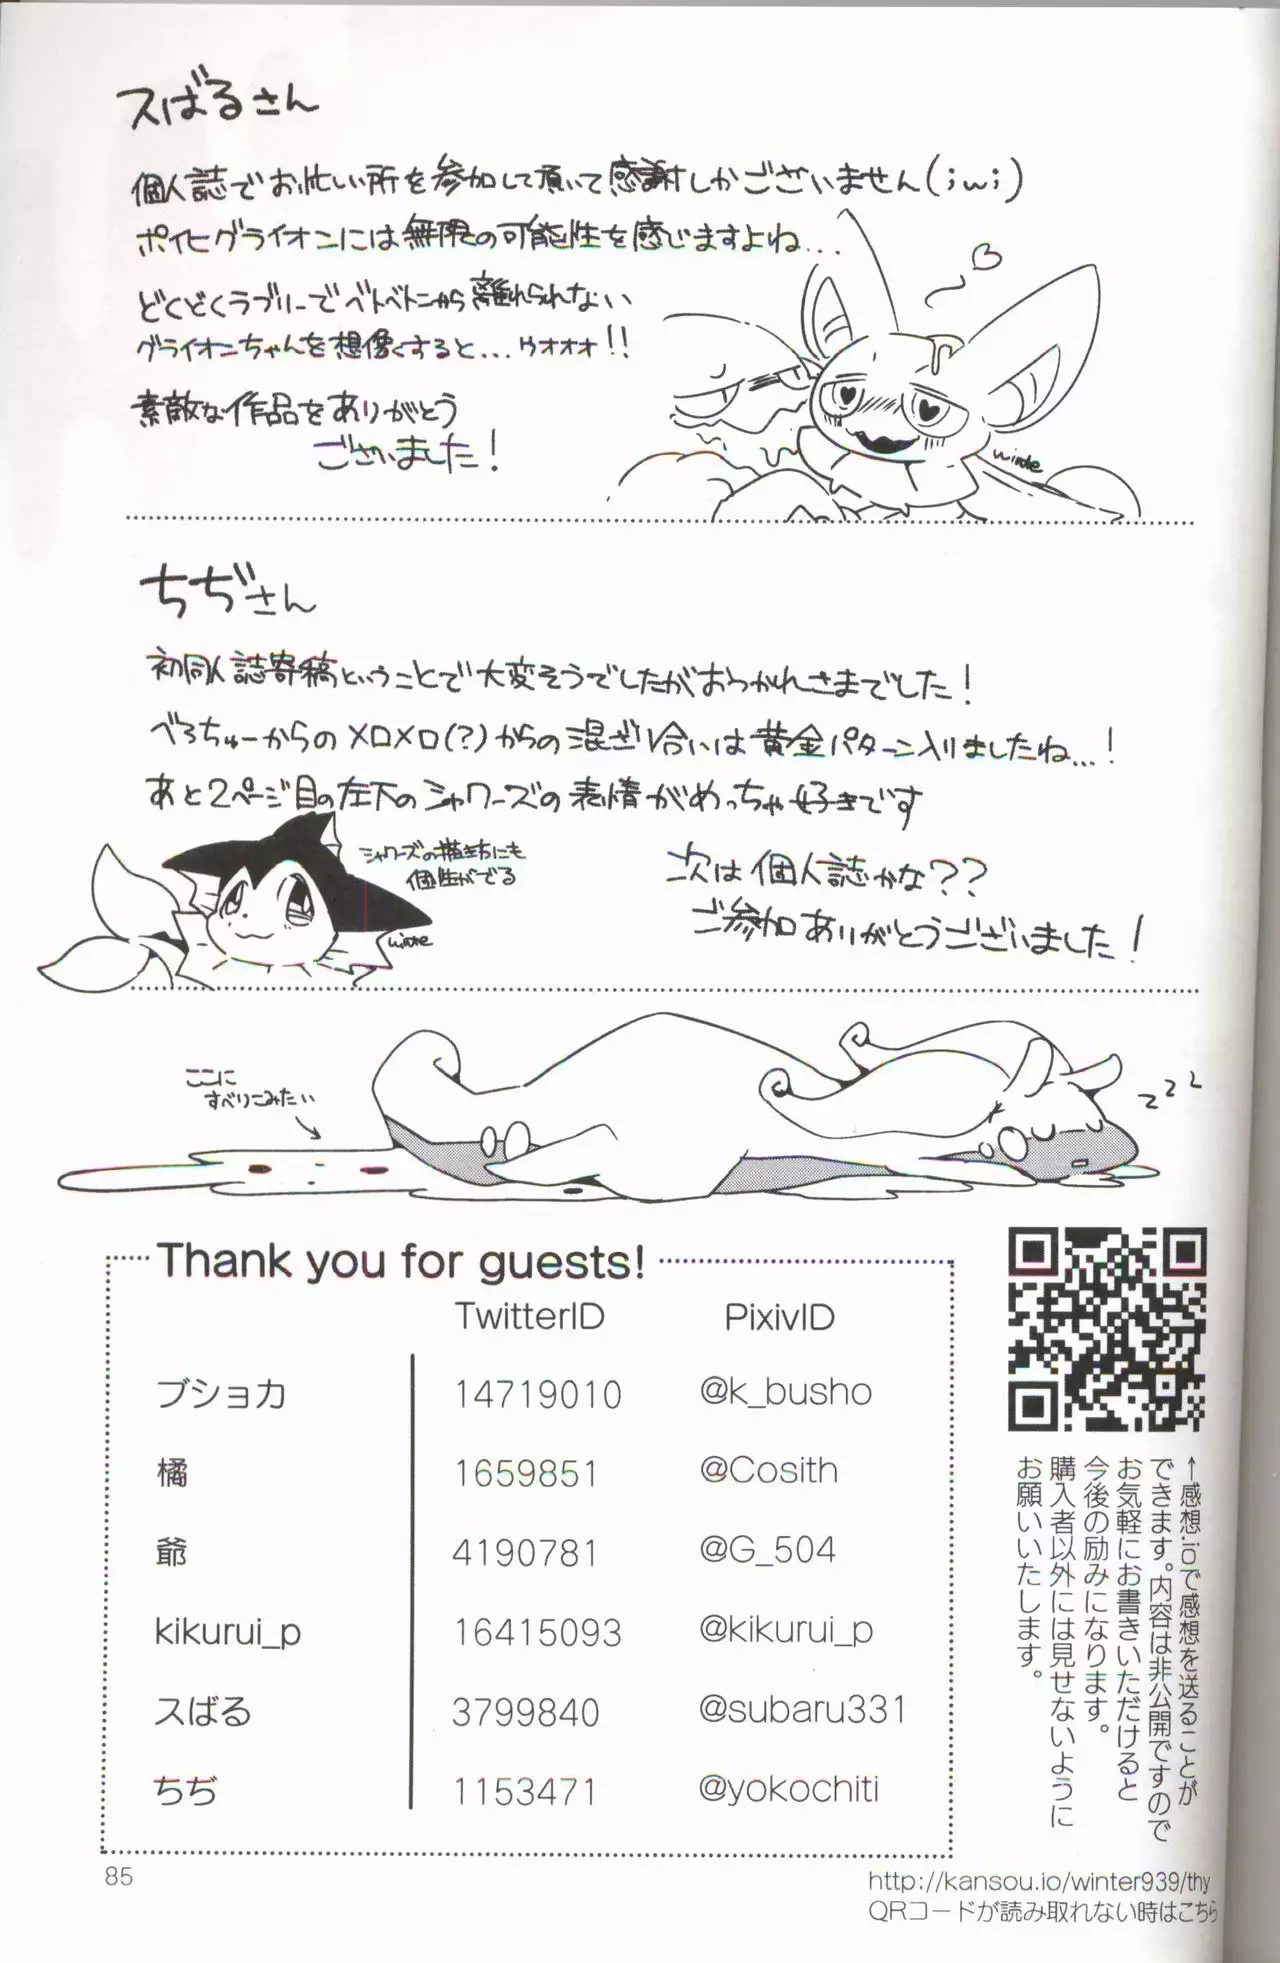 スばるさん
個人誌でお忙しい所を参加して頂いて感謝しかございません(;w;)
ポイヒグライオンには無限の可能性を感じますよね...
どくどくラブリーでベトベトンから離れられない
グライオンちゃんを想像すると...ゥオオオ!!
素敵な作品をありがとう
ございました!
winte
ちぢさん
初同人誌寄稿ということで大変そうでしたがおつかれさまでした!
べろちゅーからのメロメロ(?)からの混ざり合いは黄金パターン入りましたね...!
あと2ページ目の左下のシャワーズの表情がめっちゃ好きです
シャワーズの描き方にも
個性がでる
次は個人誌かな??
ご参加ありがとうございました!
winte
ここに
すべりこみたい
zzz
Thank you for guests!
TwitterID PixivID
ブショカ 14719010 @k_busho
橘 1659851 @Cosith
爺 4190781 @G_504
kikurui_p 16415093 @kikurui_p
スばる 3799840 @subaru331
ちぢ 1153471 @yokochiti
←感想.ioで感想を送ることが
できます。内容は非公開ですので
お気軽にお書きいただけると
今後の励みになります。
購入者以外には見せないように
お願いいたします。
85
http://kansou.io/winter939/thy
QRコードが読み取れない時はこちら